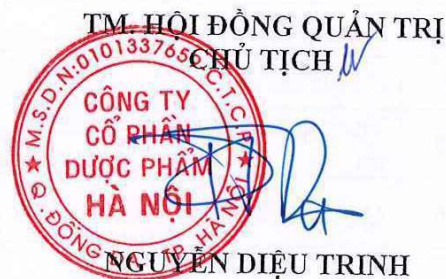 TM. HỘI ĐỒNG QUẢN TRỊ
CHỦ TỊCH
M.S.D.N:0101337656-C.T.C.P
CÔNG TY
CỔ PHẦN
DƯỢC PHẨM
HÀ NỘI
Q. ĐỐNG ĐA - TP. HÀ NỘI
NGUYỄN DIỆU TRINH